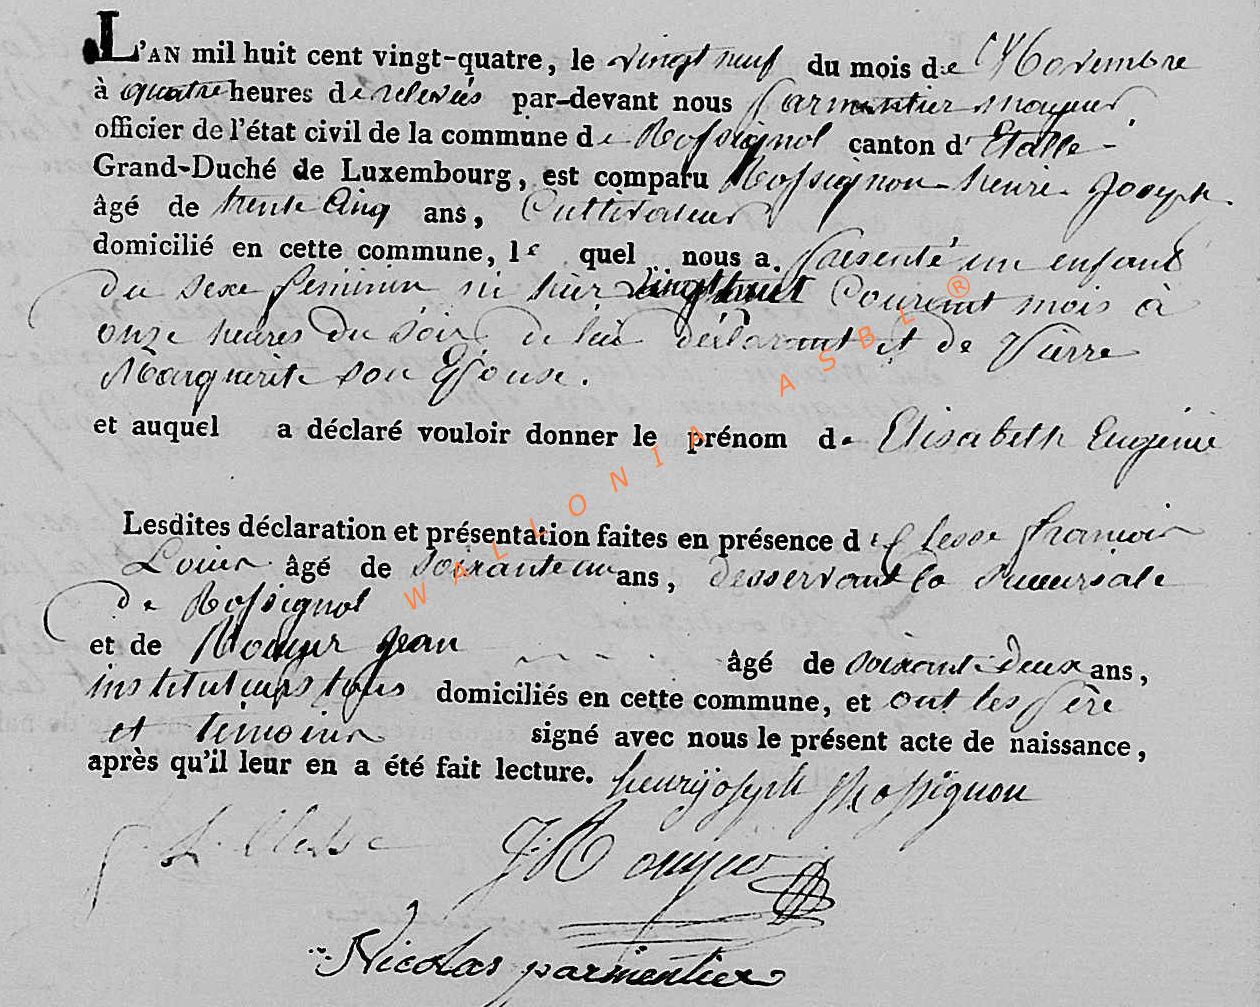 L'AN mil huit cent vingt-quatre, le vingt neuf du mois de Novembre
à quatre heures de relevées par-devant nous Parmentier mayeur
officier de l'état civil de la commune de Rossignol canton d'Etalle
Grand-Duché de Luxembourg, est comparu Rossignon henri Joseph
âgé de trente Cinq ans, Cultivateur
domicilié en cette commune, le quel nous a présenté un enfant
du sexe feminin né hier vingt huit Courant mois à
onze heures du soir de lui déclarant et de Pierre
Marguerite son Epouse.
et auquel a déclaré vouloir donner le prénom de Elisabeth Eugénie
Lesdites déclaration et présentation faites en présence de Clesse françois
Louis âgé de soixante un ans, desservant la succursale
de Rossignol
et de Jean âgé de soixante deux ans,
instituteur tous domiciliés en cette commune, et ont les Père
et témoins signé avec nous le présent acte de naissance,
après qu'il leur en a été fait lecture. henry joseph Rossignon
Nicolas parmentier
WALLONIA ASBL ®